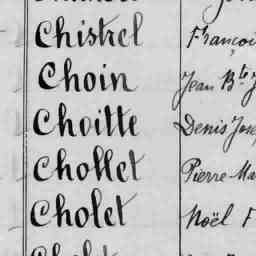 Chistrel Françoi
Choin Jean Bte J
Choitte Denis Jose
Chollet Pierre-Ma
Cholet Noël F